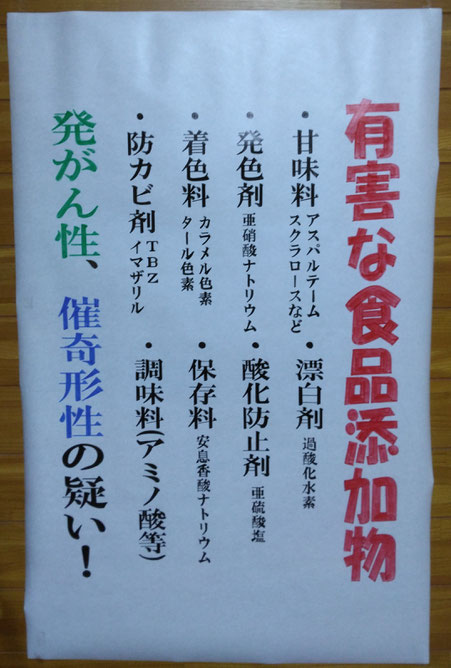 有害な食品添加物
・甘味料 アスパルテーム
スクラロースなど
・漂白剤 過酸化水素
・発色剤 亜硝酸ナトリウム
・酸化防止剤 亜硫酸塩
・着色料 カラメル色素
タール色素
・保存料 安息香酸ナトリウム
・防カビ剤 TBZ
イマザリル
・調味料(アミノ酸等)
発がん性、催奇形性の疑い!